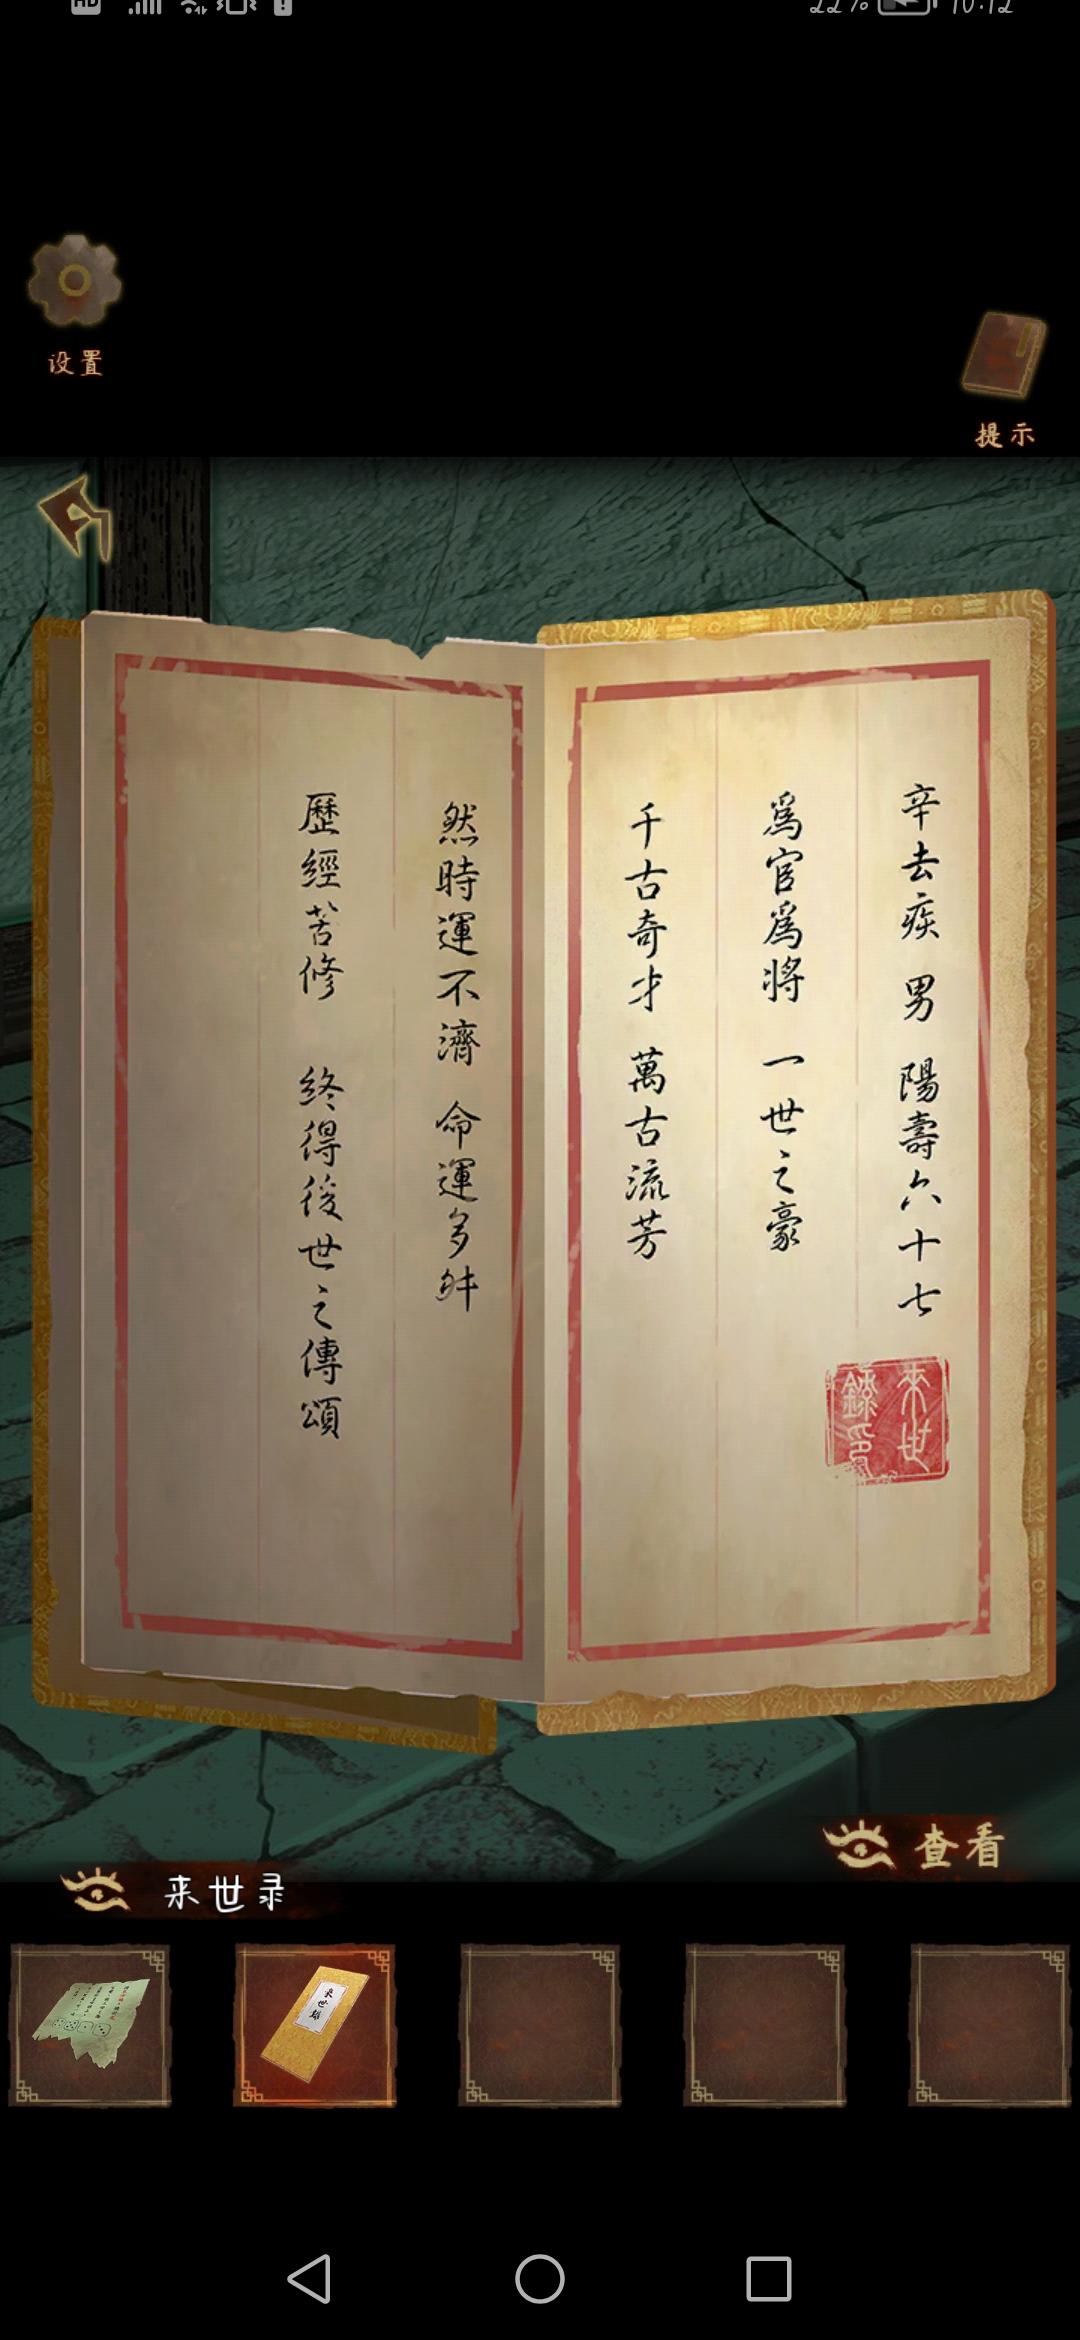 HD
22% 10:12
设置
提示
辛去疾 男 陽壽六十七
爲官爲將 一世之豪
千古奇才 萬古流芳
然時運不濟 命運多舛
歷經苦修 終得後世之傳頌
來世
錄印
查看
来世录
來世錄